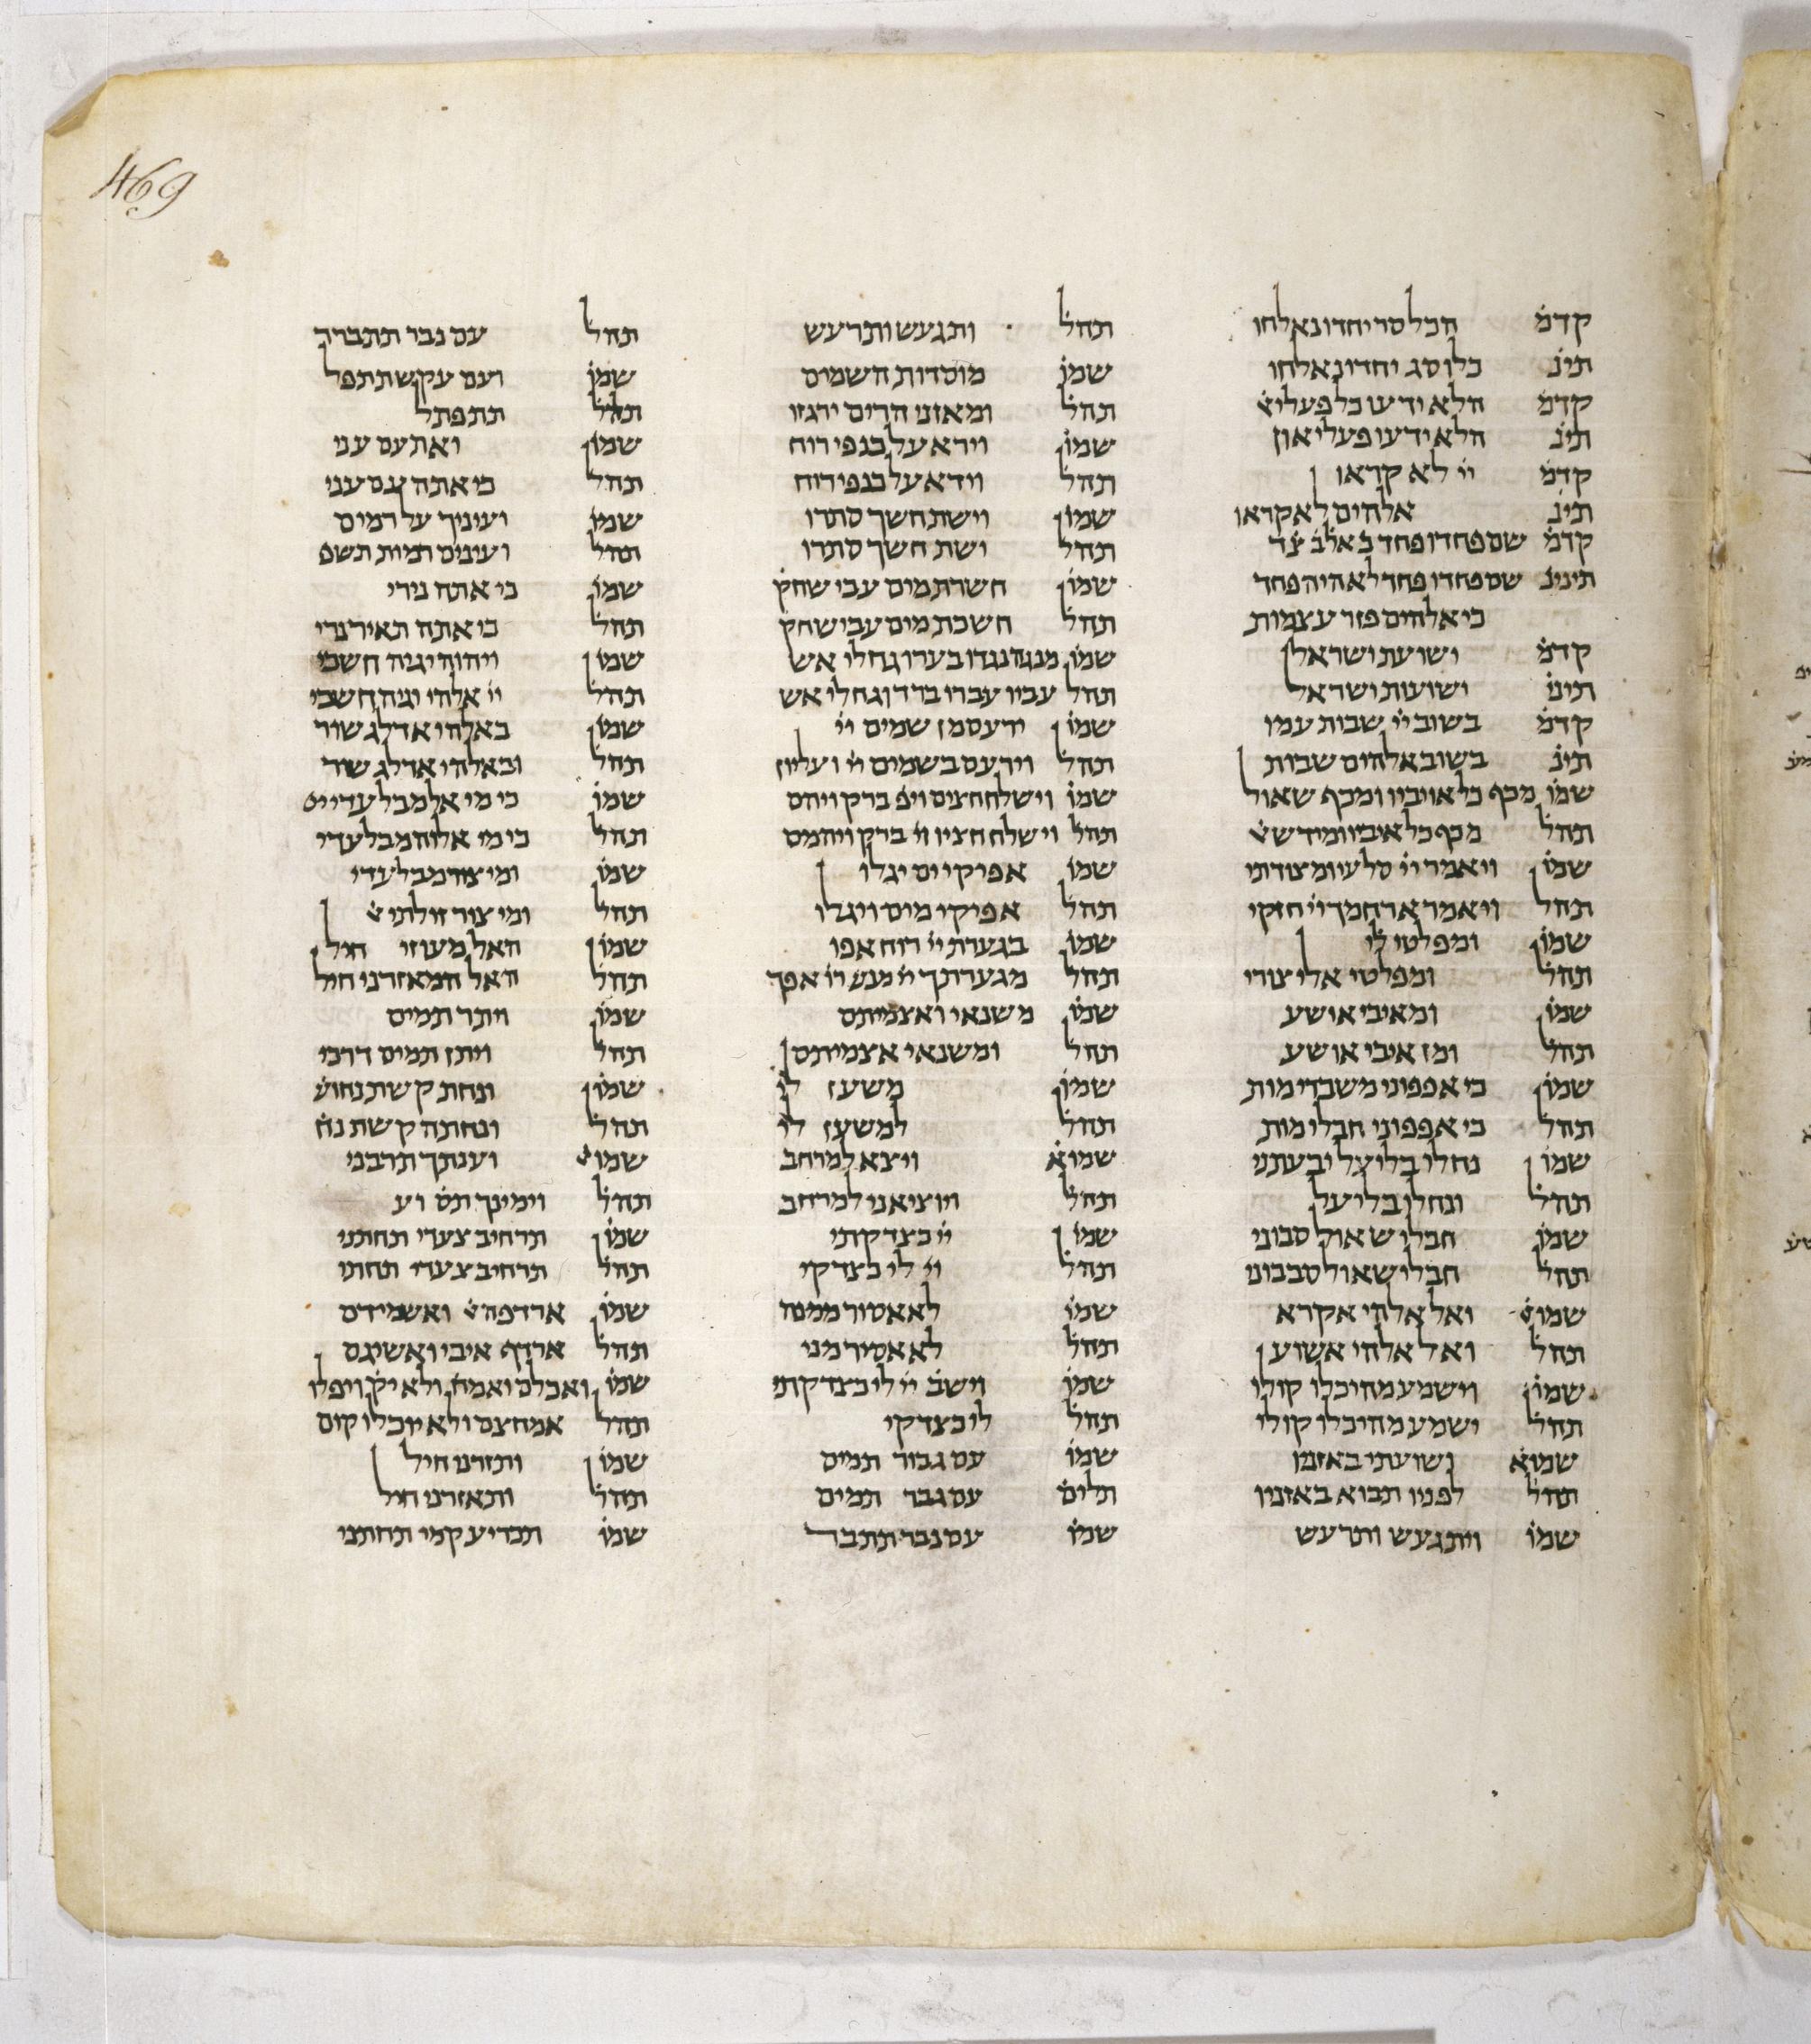 469
קדמ הכל סר יחדו נאלחו
תינ כלו סג יחדו נאלחו
קדמ הלא ידעו כל פעלי
תינ הלא ידעו פעלי און
קדמ יי לא קראו
תינ אלהים לא קראו
קדמ שם פחדו פחד כאלב צד
תיני שם פחדו פחד לא היה פחד
כי אלהים פזר עצמות
קדמ ישועת ישראל
תינ ישועות ישראל
קדמ בשוב יי שבות עמו
תינ בשוב אלהים שבות
שמו מכף כל אויביו ומכף שאול
תהל מכף כל איביו ומיד ש
שמו ויאמר יי סלעי ומצודתי
תהל ויאמר ארחמך יי חזקי
שמו ומפלטי לי
תהל ומפלטי אלי צורי
שמו ומאיבי אושע
תהל ומן איבי אושע
שמו כי אפפוני משברי מות
תהל כי אפפוני חבלי מות
שמו נחלי בליעל יבעתני
תהל ונחלי בליעל
שמו חבלי שאול סבוני
תהל חבלי שאול סבבוני
שמו ואל אלהי אקרא
תהל ואל אלהי אשוע
שמו וישמע מהיכלו קולי
תהל ישמע מהיכלו קולי
שמו ושועתי באזניו
תהל לפניו תבוא באזניו
שמו ויתגעש ותרעש
תהל ותגעש ותרעש
שמו מוסדות השמים
תהל ומאזני הרים ירגזו
שמו וירא על כנפי רוח
תהל וידא על כנפי רוח
שמו וישת חשך סתרו
תהל ישת חשך סתרו
שמו חשרת מים עבי שחק
תהל חשכת מים עבי שחק
שמו מנגה נגדו בערו גחלי אש
תהל עביו עברו ברד וגחלי אש
שמו ירעם מן שמים יי
תהל וירעם בשמים יי ועליון
שמו וישלח חצים ויפ ברק ויהם
תהל וישלח חציו יי ברק ויהמם
שמו אפיקי ים יגלו
תהל אפיקי מים ויגלו
שמו בגערת יי רוח אפו
תהל מגערתך יי מנש רו אפך
שמו משנאי ואצמיתם
תהל ומשנאי אצמיתם
שמו משען לי
תהל למשען לי
שמו ויצא למרחב
תהל ויוציאני למרחב
שמו יי כצדקתי
תהל יי לי כצדקי
שמו לא אסור ממנה
תהל לא אסיר מני
שמו וישב יי לי כצדקתי
תהל לי כצדקי
שמו עם גבור תמים
תלים עם גבר תמים
שמו עם נבר תתבר
תהל עם נבר תתברר
שמו ועם עקש תתפל
תהל תתפתל
שמו ואת עם עני
תהל כי אתה עם עני
שמו ועיניך על רמים
תהל ועינים רמות תשפ
שמו כי אתה נירי
תהל כי אתה תאיר נרי
שמו ויהוה יגיה חשכי
תהל יי אלהי יגיה חשכי
שמו באלהי אדלג שור
תהל ובאלהי אדלג שור
שמו כי מי אל מבלעדי יי
תהל כי מי אלוה מבלעדי
שמו ומי צור מבלעדי
תהל ומי צור זולתי
שמו האל מעוזי חיל
תהל האל המאזרני חיל
שמו ויתר תמים
תהל ויתן תמים דרכי
שמו ונחת קשת נחוש
תהל ונחתה קשת נח
שמו וענתך תרבני
תהל וימינך תס וע
שמו תרחיב צעדי תחתני
תהל תרחיב צעדי תחתי
שמו ארדפה ואשמידם
תהל ארדף איבי ואשיגם
שמו ואכלם ואמח ולא יק ויפלו
תהל אמחצם ולא יוכלו קום
שמו ותזרני חיל
תהל ותאזרני חיל
שמו תכריע קמי תחתני